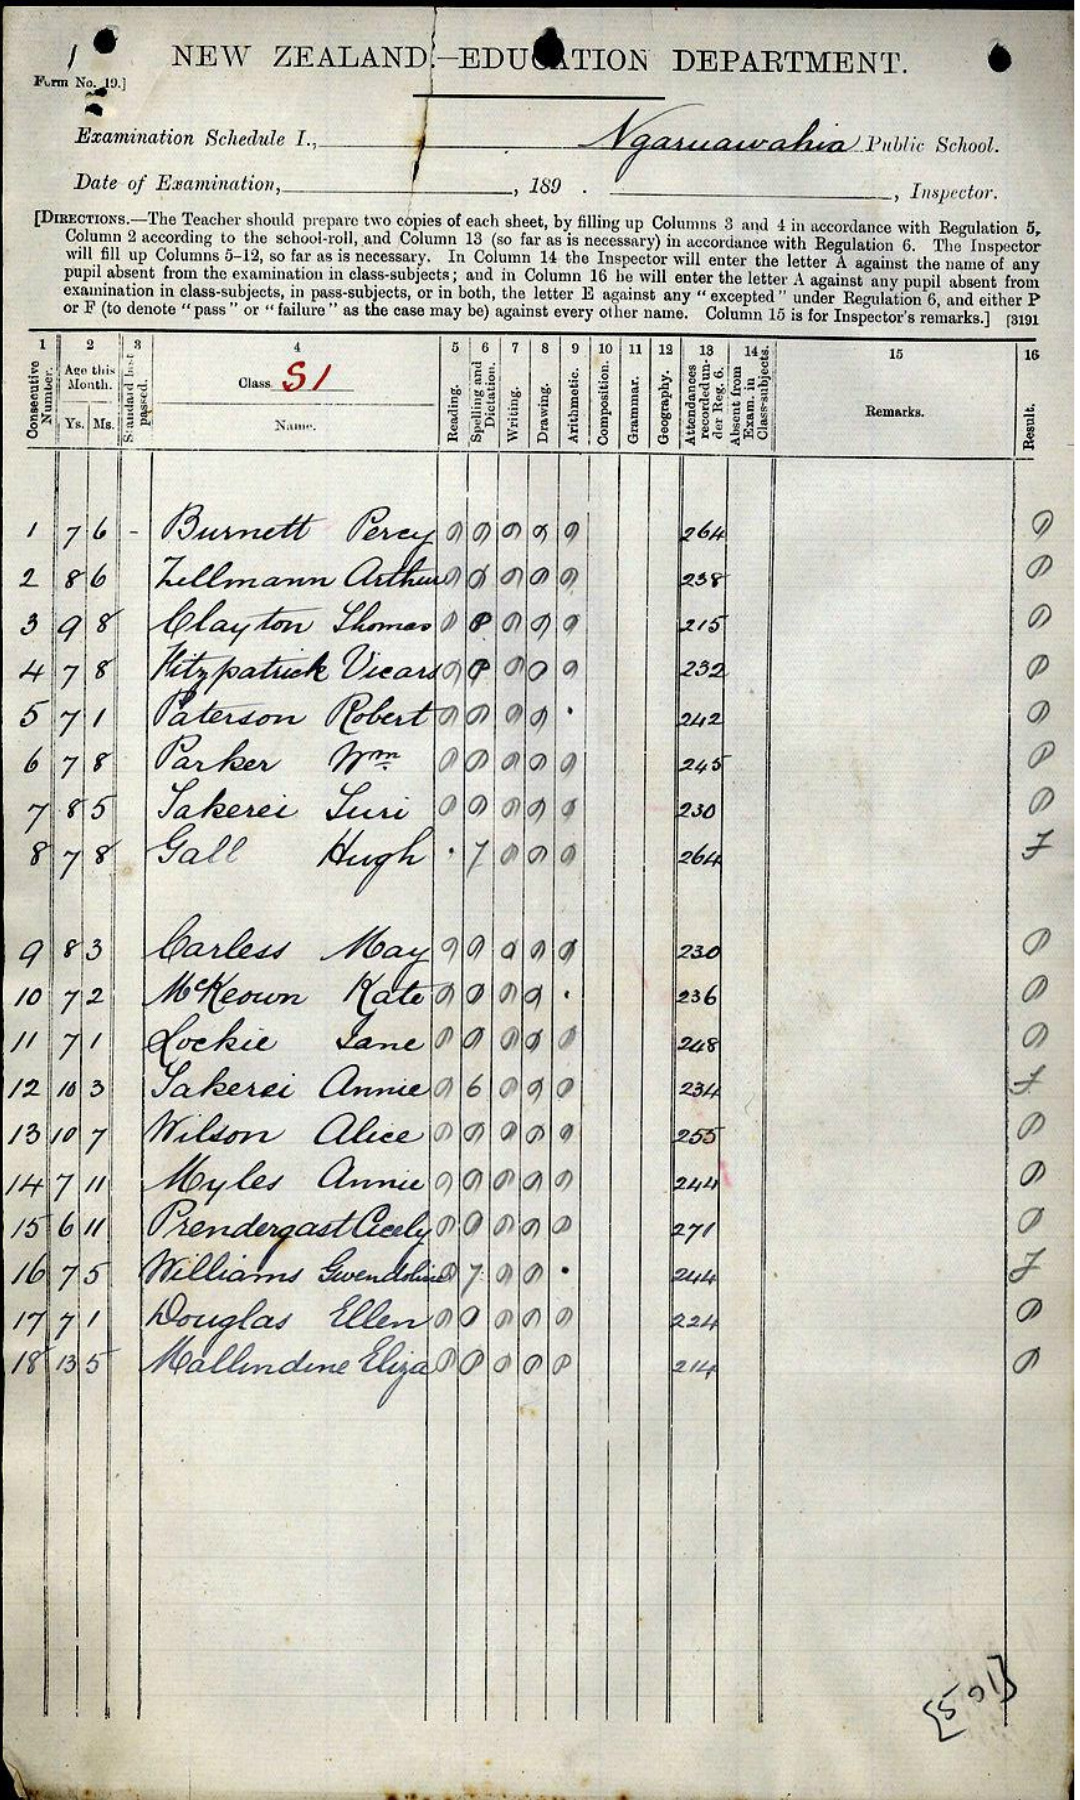 1
NEW ZEALAND.—EDUCATION DEPARTMENT.
Form No. 19.]
Examination Schedule I., Ngaruawahia Public School.
Date of Examination, , 189 . , Inspector.
[DIRECTIONS.—The Teacher should prepare two copies of each sheet, by filling up Columns 3 and 4 in accordance with Regulation 5,
Column 2 according to the school-roll, and Column 13 (so far as is necessary) in accordance with Regulation 6. The Inspector
will fill up Columns 5–12, so far as is necessary. In Column 14 the Inspector will enter the letter A against the name of any
pupil absent from the examination in class-subjects; and in Column 16 he will enter the letter A against any pupil absent from
examination in class-subjects, in pass-subjects, or in both, the letter E against any “excepted” under Regulation 6, and either P
or F (to denote “pass” or “failure” as the case may be) against every other name. Column 15 is for Inspector's remarks.] [3191
1 2 3 4 5 6 7 8 9 10 11 12 13 14 15 16
Consecutive Number. Age this Month. Ys. Ms. Standard last passed. Class S1 Name. Reading. Spelling and Dictation. Writing. Drawing. Arithmetic. Composition. Grammar. Geography. Attendances recorded under Reg. 6. Absent from Exam. in Class-subjects. Remarks. Result.
1 7 6 - Burnett Percy 264
2 8 6 Zellmann Arthur 238
3 9 8 Clayton Thomas 215
4 7 8 Fitzpatrick Vicars 232
5 7 1 Paterson Robert · 242
6 7 8 Parker Wm. 245
7 8 5 Takerei Turi 230
8 7 8 Gall Hugh · 7 264 F
9 8 3 Carless May 230
10 7 2 McKeown Kate · 236
11 7 1 Lockie Jane 248
12 10 3 Takerei Annie 6 234 F
13 10 7 Wilson Alice 255
14 7 11 Myles Annie 244
15 6 11 Prendergast Cicely 271
16 7 5 Williams Gwendoline 7 · 244 F
17 7 1 Douglas Ellen 224
18 13 5 Mallindine Eliza 214